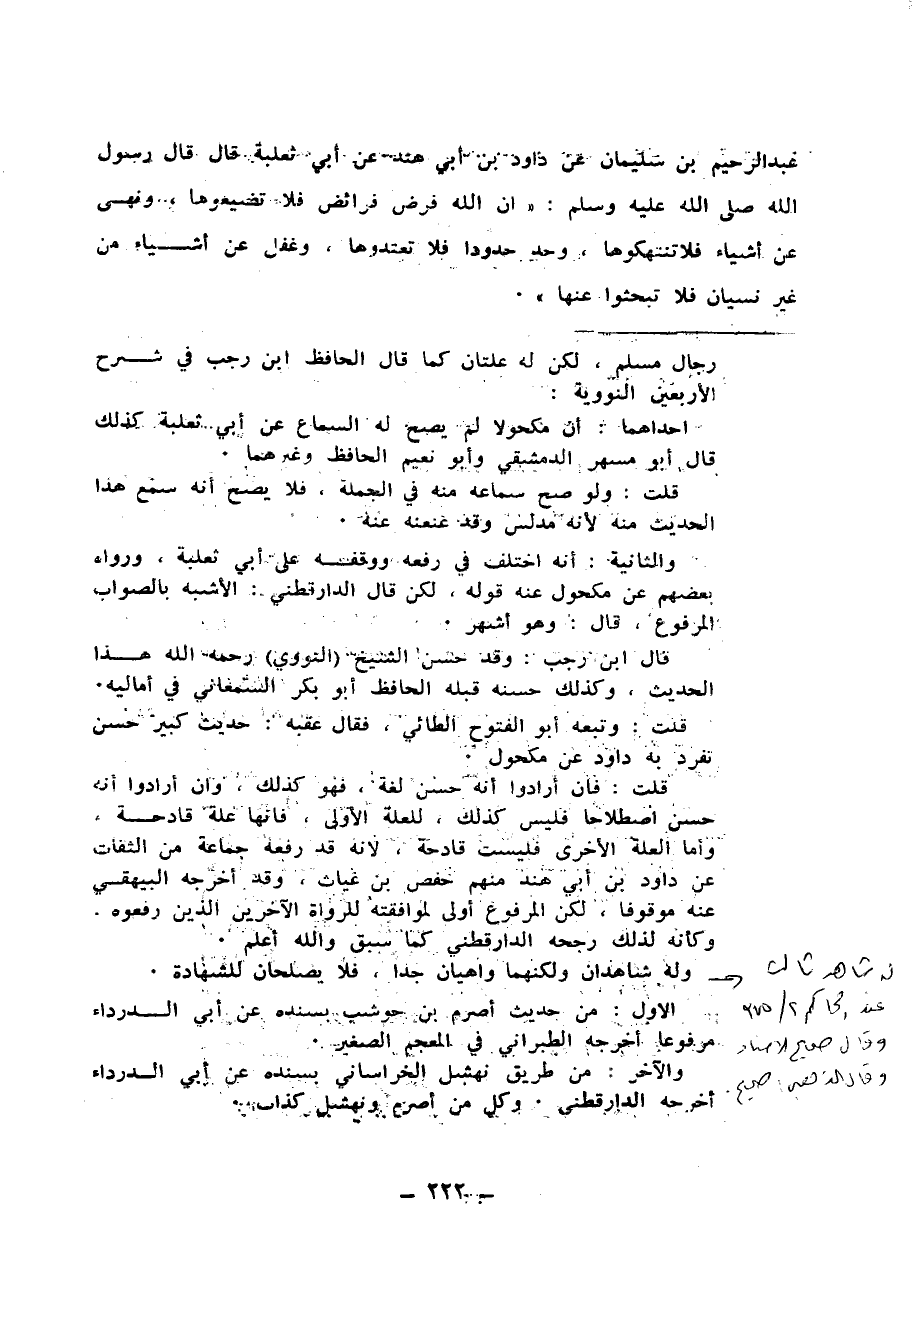 عبدالرحيم بن سليمان عن داود بن أبي هند عن أبي ثعلبة قال قال رسول
الله صلى الله عليه وسلم : « ان الله فرض فرائض فلا تضيعوها ، ونهى
عن أشياء فلاتنتهكوها ، وحد حدودا فلا تعتدوها ، وغفل عن أشياء من
غير نسيان فلا تبحثوا عنها » .
رجال مسلم ، لكن له علتان كما قال الحافظ ابن رجب في شرح
الأربعين النووية :
احداهما : أن مكحولا لم يصح له السماع عن أبي ثعلبة كذلك
قال أبو مسهر الدمشقي وأبو نعيم الحافظ وغيرهما .
قلت : ولو صح سماعه منه في الجملة ، فلا يصح أنه سمع هذا
الحديث منه لأنه مدلس وقد عنعنه عنه .
والثانية : أنه اختلف في رفعه ووقفه على أبي ثعلبة ، ورواه
بعضهم عن مكحول عنه قوله ، لكن قال الدارقطني : الأشبه بالصواب
المرفوع ، قال : وهو أشهر .
قال ابن رجب : وقد حسن الشيخ (النووي) رحمه الله هذا
الحديث ، وكذلك حسنه قبله الحافظ أبو بكر السمعاني في أماليه.
قلت : وتبعه أبو الفتوح الطائي ، فقال عقبه : حديث كبير حسن
تفرد به داود عن مكحول .
قلت : فان أرادوا أنه حسن لغة ، فهو كذلك ، وان أرادوا أنه
حسن اصطلاحا فليس كذلك ، للعلة الأولى ، فانها علة قادحة ،
وأما العلة الأخرى فليست قادحة ، لانه قد رفعه جماعة من الثقات
عن داود بن أبي هند منهم حفص بن غياث ، وقد أخرجه البيهقي
عنه موقوفا ، لكن المرفوع أولى لموافقته للرواة الآخرين الذين رفعوه .
وكأنه لذلك رجحه الدارقطني كما سبق والله أعلم .
وله شاهدان ولكنهما واهيان جدا ، فلا يصلحان للشهادة .
الاول : من حديث أصرم بن حوشب بسنده عن أبي الدرداء
مرفوعا أخرجه الطبراني في المعجم الصغير .
والآخر : من طريق نهشل الخراساني بسنده عن أبي الدرداء
أخرجه الدارقطني . وكل من أصرم ونهشل كذاب .
له شاهد ثالث
عند الحاكم ٢/٣٧٥
وقال صحيح الاسناد
وقال الذهبي : صحيح .
– ٢٢٢ –